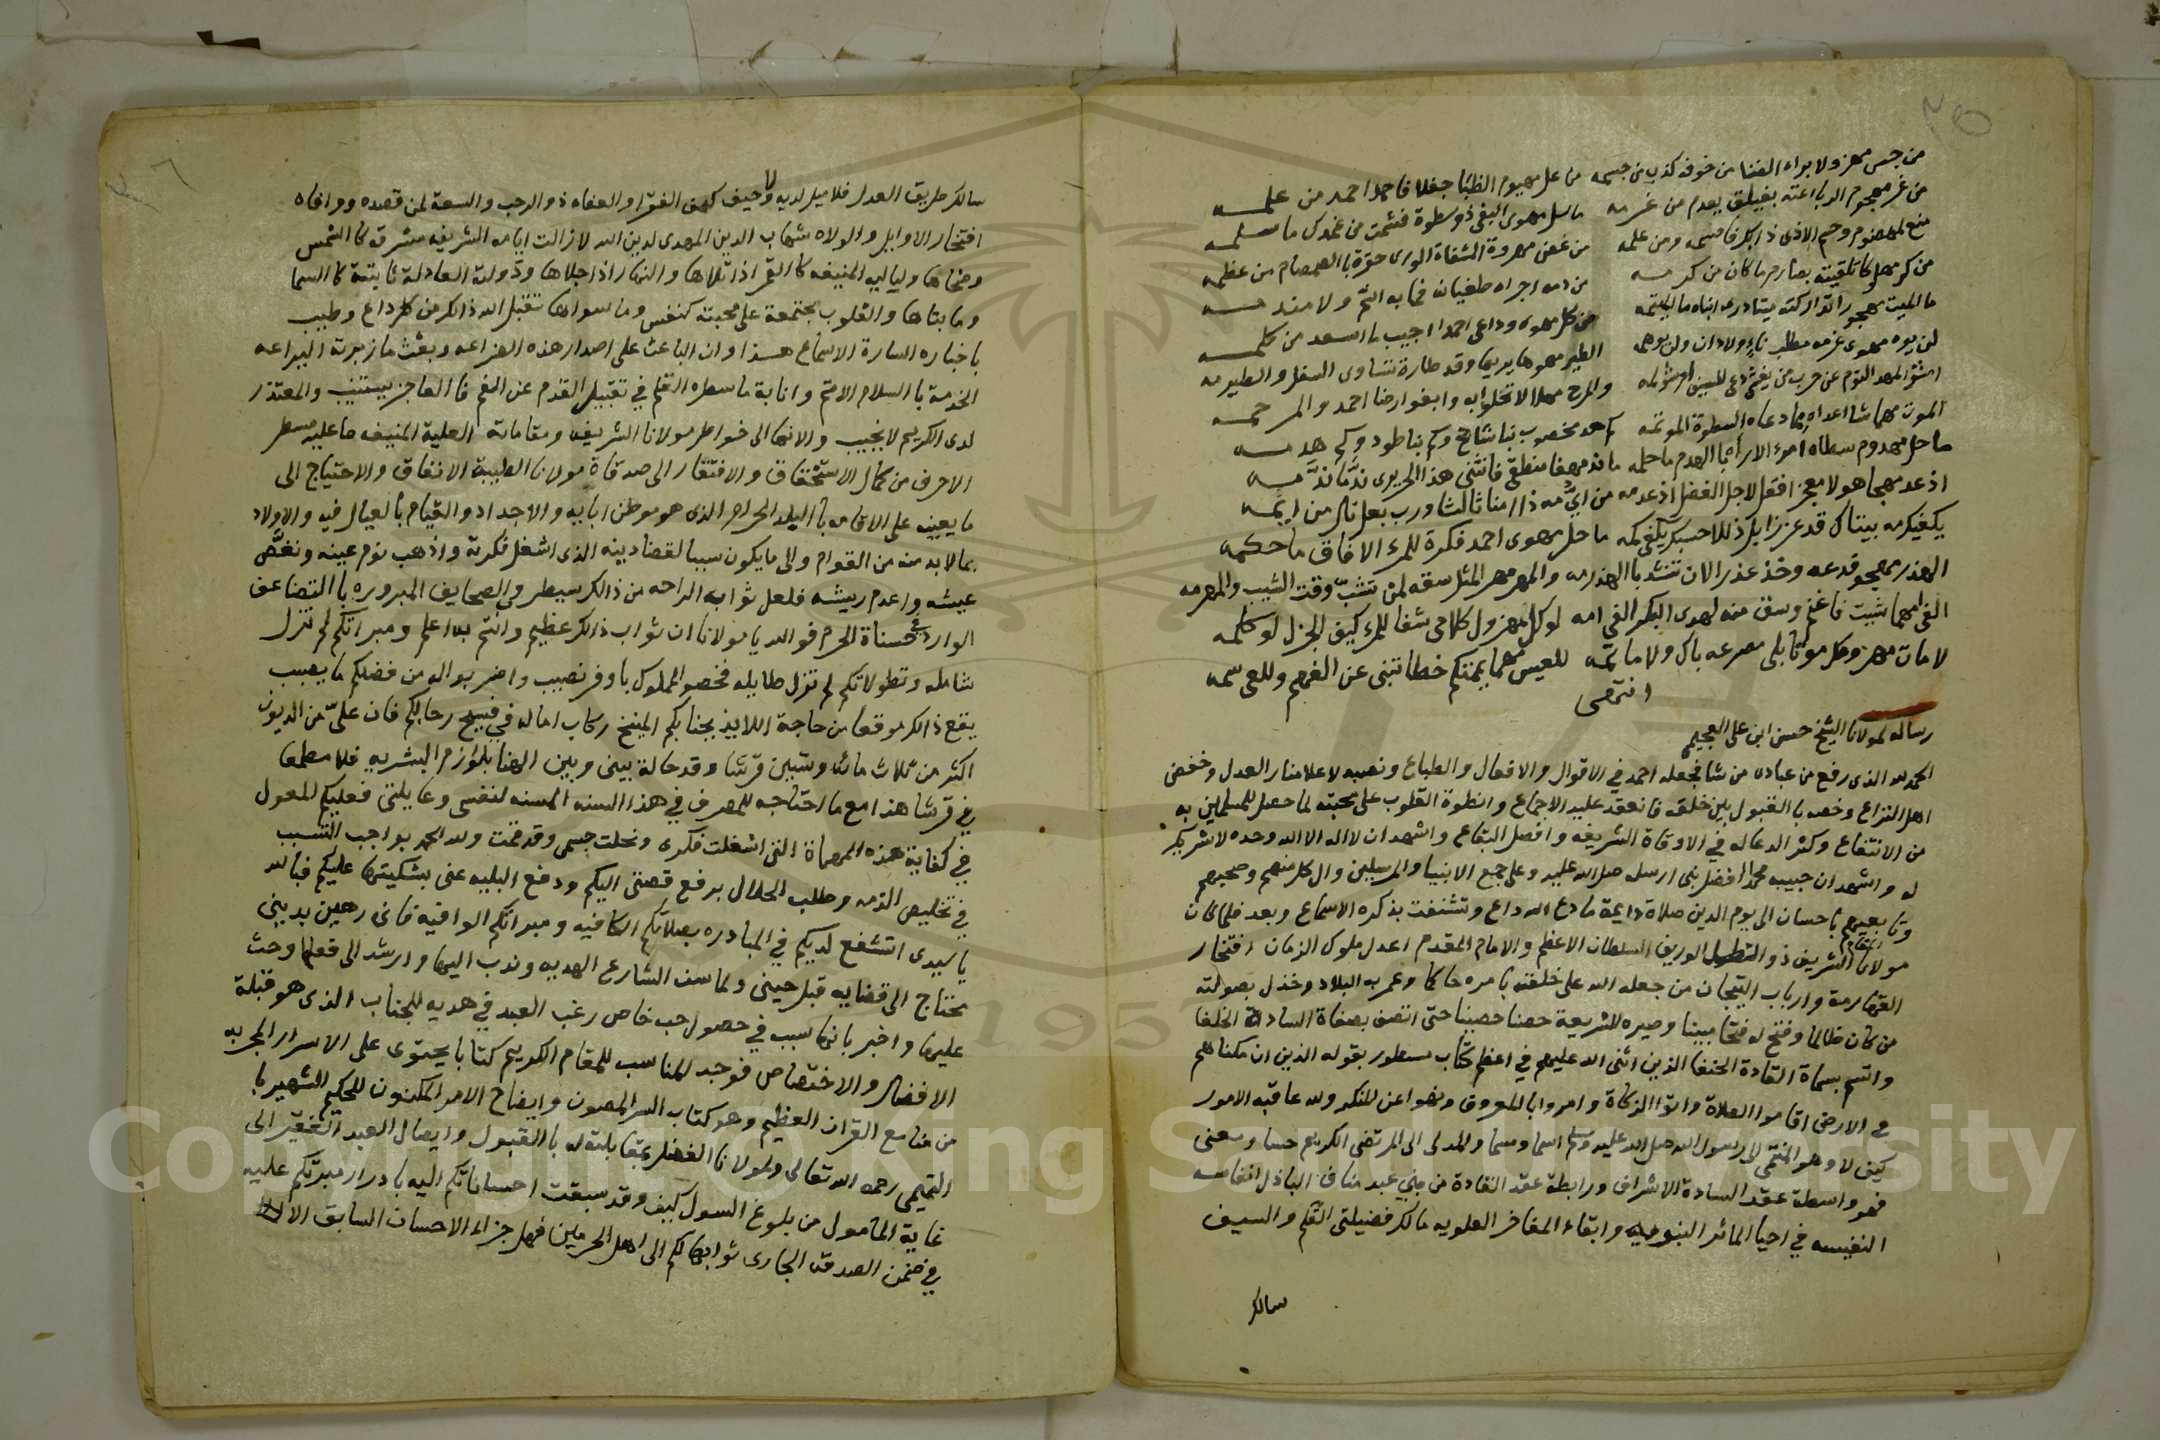 من جس مهزولا براء الفنا من خوفه كذب من جسمه من عل مهيوم الظبا جفلا فاحمد احمد من علمه
من غر مهجوم الربا اعته بفيلق يعدم من غرمه ما سل مهوى البغي ذو سطوة فشمت من غمدك ما سلمه
منع لمهضوم وحم الاذى من غض مهروة الشفاة الورى
من كر مهلوكا تلقيته بصارم ما كان من كرمه من دمه اجراه طغيان فما به اثم ولا مندمه
ما الميت مهجور من كل مهوى وداعى احمد اجيب ما اسعد من كلمه
لن يوه مهوى عزمه مطلب الطير مهوها يريها وقد طارة تساوى السفل والطيرمه
والمرح مهلا لا تخلوا به وابغوا رضا احمد والمرحمه
الموت مهما شا اعداه دعاه السطوة الموتمه
ما حل مهدوم سطاه امرء الا راى ما الهدم ما حله
اذ عد مهجا هولا معجز افعل لاجل الفضل اذ عدمه
يكفيكمه بيتاك قد عززا ما حل مهوى احمد فكرة للمرء الا فاق ما حكمه
الهذر مهجو فدعه وخذ عذر الان تنشد بالهذرمه
الفى مهما شيت فاغنم وسق منه لهوى البكر الفى امه لو كل مهزول كلامى شفا للمرء كيف الجزل لو كلمه
لا مات مهزو وكل مصرعه باك ولا ماتمه للعيس مهما يمتكم خطا تبنى عن الغرم وللعى سمه
انتهى
رساله لمولانا الشيخ حسن ابن على العجيمى
الحمد لله الذى رفع من عباده من شا فجعله احمد في الاقوال والافعال والطباع ونصبه لاعلا منار العدل وخفض
اهل النزاع وخصه با القبول بين خلقه فانعقد عليه الاجماع وانطوة القلوب على محبته لما حصل للمسلمين به
من الانتفاع وكثر الدعا له في الاوقاة الشريفه وافضل البقاع واشهد ان لا اله الا الله وحده لا شريك
له واشهد ان حبيبه محمد افضل نبى ارسله صلى الله عليه وعلى جميع الانبيا والمرسلين وال كل منهم وصحبهم
وتابعيهم باحسان الى يوم الدين صلاة دايمة ما دعا لله داع وتشنفت بذكره الاسماع وبعد فلما كان
مولانا المقام الشريف ذو الظل الوريف السلطان الاعظم والامام المقدم اعدل ملوك الزمان افتخار
القهارمة وارباب التيجان من جعله الله على خلقته بامره حاكما وعمر به البلاد وخذل بصولته
من كان ظالما وفتح له فتحا مبينا وصيره للشريعة حصنا حصينا حتى اتصف بصفاة السادات الخلفا
واتسم بسماة القادة الحنفا الذين اثنى الله عليهم في اعظم كتاب مسطور بقوله الذين ان مكناهم
في الارض اقاموا الصلاة واتوا الزكاة وامروا بالمعروف ونهوا عن المنكر ولله عاقبة الامور
كيف لا وهو المنتمى الى رسول الله صلى الله عليه وسلم اسما وسما والمدلى الى المرتضى الكريم حسا ومعنى
فهو واسطة عقد السادة الاشراف ورابطة عقد القادة من بني عبد مناف الباذل انفاسه
النفيسه في احيا المآثر النبويه وابقاء المفاخر العلويه مالك فضيلتى القلم والسيف
سالك
سالك طريق العدل فلا ميل لديه ولا حيف كهف الفقرا والعفاه ذو الرحب والسعة لمن قصده ووافاه
افتخار الاوايل والولاه شهاب الدين المهدى لدين الله لا زالت ايامه الشريفه مشرقة كا الشمس
وضحاها ولياليه المنيفه كا القمر اذا تلاها والنهار اذا جلاها ودولته العادلة ثابتة كا السما
وما بناها والقلوب مجتمعة على محبته كنفس وما سواها تقبل الله ذالك من كل داع وطيب
باخباره السارة الاسماع هذا وان الباعث على اصدار هذه الضراعه وبعث ما زبرته اليراعه
الخدمة با السلام الاتم وانابة ما سطره القلم في تقبيل القدم عن الفم فا العاجز يستنيب والمعتذر
لدى الكريم لا يخيب والانها الى خواطر مولانا الشريفه ومقاماته العلية المنيفه ما عليه مسطر
الاحرف من كمال الاستحقاق والافتقار الى صدقاة مولانا الطيبة الانفاق والاحتياج الى
ما يعينه على الاقامه با البلد الحرام الذى هو موطن ابايه والاجداد والقيام با العيال فيه والاولاد
بما لا بد منه من القوام والى ما يكون سببا لقضا دينه الذى اشغل فكرته واذهب نوم عينه ونغص
عيشه واعدم ريشه فلعل ثوابه الراحه من ذالك سيطر في الصحايف المبروره با التضاعف
الوارد في حسناة الحرم فوالله يا مولانا ان ثواب ذالك عظيم وانتم به اعلم ومبراتكم لم تزل
شامله وتطولاتكم لم تزل طايله فخصوا المملوك باوفر نصيب واضربوا له من فضلكم ما يصيب
يقع ذالك موقعا من حاجة اللايذ بجنابكم المنيخ ركاب اماله في فسيح رحابكم فان علي من الديون
اكثر من ثلاث مائه وستين قرشا وقد حالة بينى وبين الهنا بلوازم البشريه فلا مطمعا
في قرشا هذا مع ما احتاجه للصرف في هذا السنه المسنه لنفسى وعايلتى فعليكم المعول
في كفاية هذه المهماة التى اشغلت فكرى ونحلت جسمى وقد قمت ولله الحمد بواجب التسبب
في تخليص الذمه وطلب الحلال برفع قصتى اليكم ودفع البليه عنى بشكيتها عليكم فبالله
يا سيدى اتشفع لديكم في المبادره بصلاتكم الكافيه ومبراتكم الوافيه فانى رهين بدينى
محتاج الى قضايه قبل حينى ولما سن الشارع الهديه وندب اليها وارشد الى فعلها وحث
عليها واخبر بانها سبب في حصول حب خاص رغب العبد في هديه للجناب الذى هو قبلة
الافضال والاختصاص فوجد المناسب للمقام الكريم كتابا يحتوى على الاسرار المجربه
من منافع القران العظيم وهو كتاب السر المصون وايضاح الامر المكنون للحكيم الشهير با
التميمى رحمه الله تعالى ولمولانا الفضل بمقابلته له با القبول وايصال العبد الفقير الى
غاية المامول من بلوغ السول كيف وقد سبقت احساناتكم اليه بادرار مبرتكم عليه
في ضمن الصدقه الجارى ثوابها لكم الى اهل الحرمين فهل جزاء الاحسان السابق الا